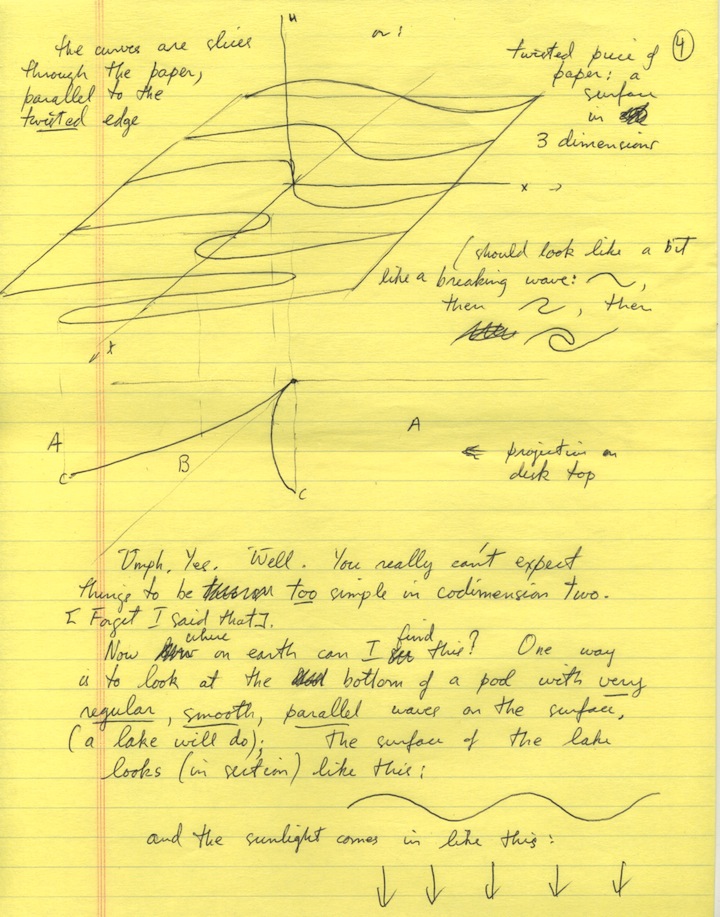 4
the curves are slices
through the paper,
parallel to the
twisted edge
u
or:
twisted piece of
paper: a
surface
in
3 dimensions
x →
(should look like a bit
like a breaking wave:
then , then
t
A
B
C
C
A
← projection on
desk top
Umph. Yes. Well. You really can't expect
things to be too simple in codimension two.
[Forget I said that].
Now where on earth can I find this? One way
is to look at the bottom of a pod with very
regular, smooth, parallel waves on the surface,
(a lake will do); the surface of the lake
looks (in section) like this:
and the sunlight comes in like this: